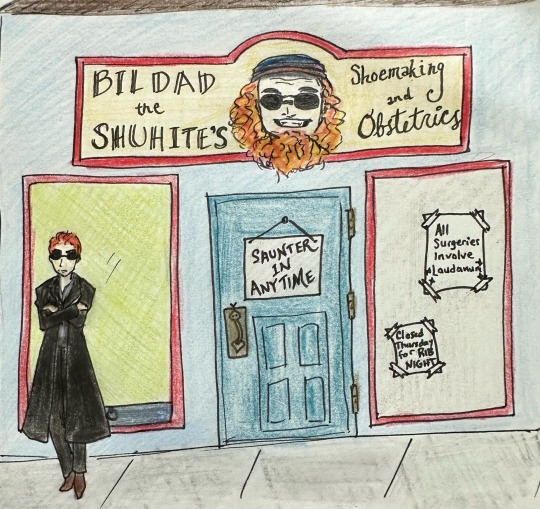 BILDAD
the
SHUHITE'S
Shoemaking
and
Obstetrics
SAUNTER
IN
ANYTIME
All
Surgeries
Involve
Laudanum
Closed
Thursday
for RIB
NIGHT